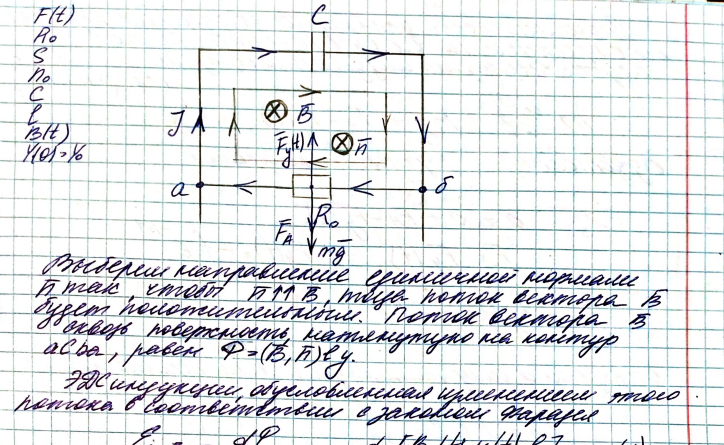 F(t)
R₀
S
n₀
C
l
B(t)
Y(0)=Y₀
C
J
B̄
F̄у(t)
n̄
а
б
R₀
F̄A
mḡ
Выберем направление единичной нормали
n̄ так, чтобы n̄↑↑B̄, тогда поток вектора B̄
будет положительным. Поток вектора B̄
сквозь поверхность, натянутую на контур
аСba, равен Φ=(B̄,n̄)ly.
ЭДС индукции, обусловленная изменением этого
потока в соответствии с законом Фарадея
dΦ